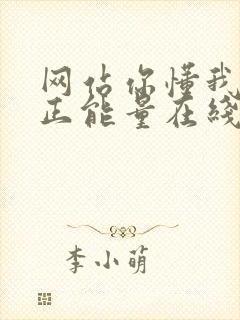 网站你懂我
正能量在线
李小萌